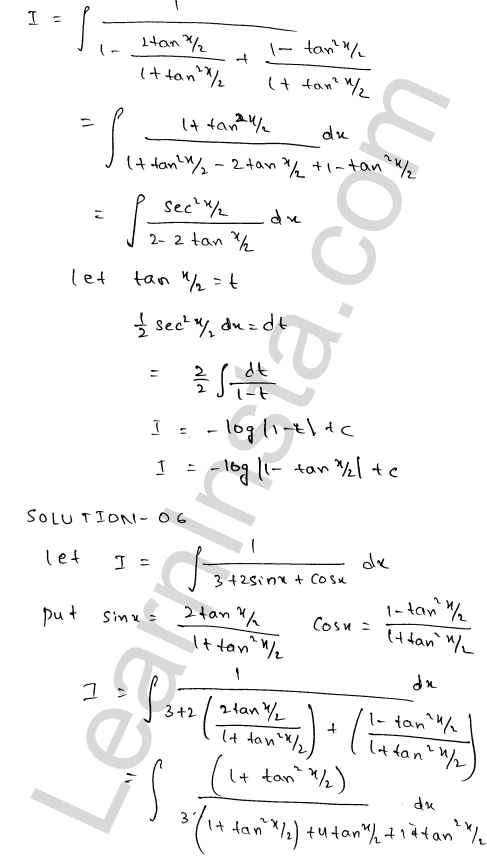 I = ∫ 1 / (1 - (2tan x/2)/(1+tan²x/2) + (1 - tan²x/2)/(1+tan²x/2))
= ∫ (1+tan²x/2) / (1+tan²x/2 - 2tan x/2 + 1 - tan²x/2) dx
= ∫ (sec²x/2) / (2-2 tan x/2) dx
let tan x/2 = t
1/2 sec²x/2 dx = dt
= 2/2 ∫ dt/(1-t)
I = -log|1-t| + c
I = -log|1- tan x/2| + c
SOLUTION-06
let I = ∫ 1 / (3+2sinx + cosx) dx
put sinx = (2tan x/2)/(1+tan²x/2) cosx = (1-tan²x/2)/(1+tan²x/2)
I = ∫ 1 / (3+2 ((2tan x/2)/(1+tan²x/2)) + ((1-tan²x/2)/(1+tan²x/2))) dx
= ∫ (1+tan²x/2) / (3(1+tan²x/2) + 4tan x/2 + 1 - tan²x/2) dx
LearnInsta.com